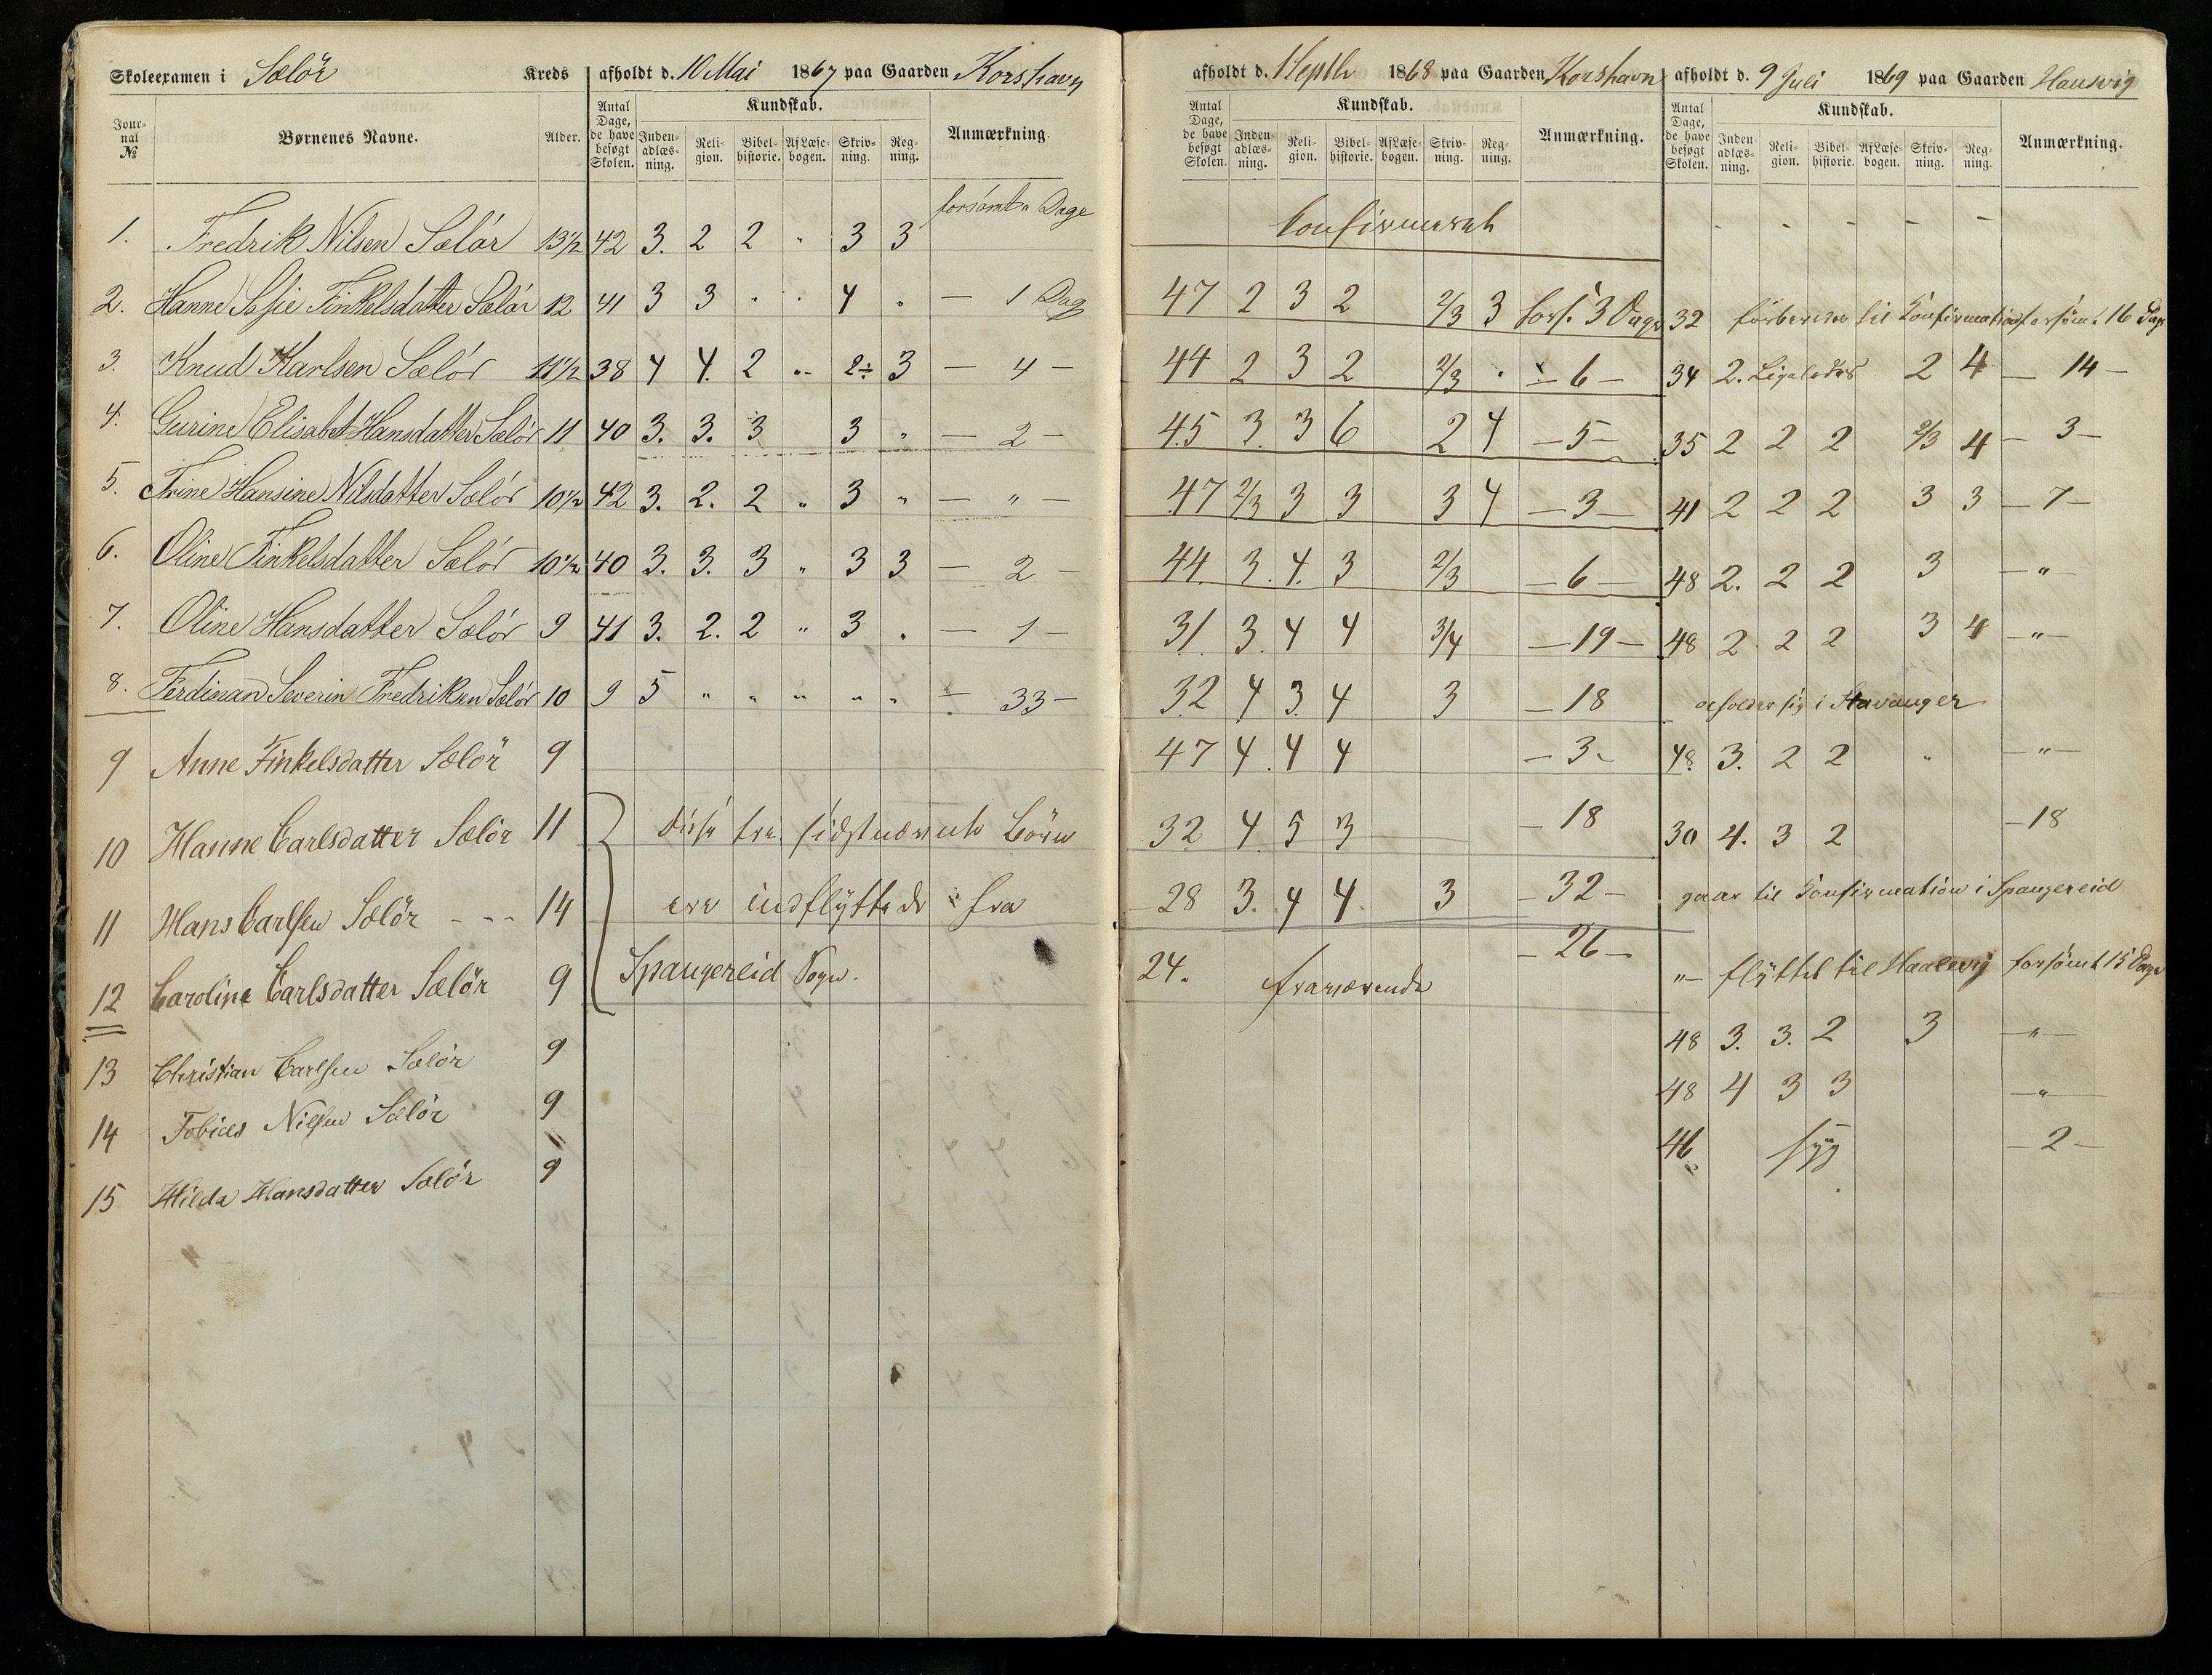 Skoleexamen i Sælör Kreds afholdt d. 10 Mai 1867 paa Gaarden Korshavn
Jour-nal № Børnenes Navne. Alder. Antal Dage, de have besøgt Skolen. Kundskab. Inden-adlæs-ning. Reli-gion. Bibel-historie. Af Læse-bogen. Skriv-ning. Reg-ning. Anmærkning.
forsömt " Dage
1. Fredrik Nilsen Sælör 13½ 42 3. 2 2 " 3 3
2. Hanne Sofie Tinkelsdatter Sælör 12 41 3 3 " " 4 " — 1 Dag
3. Knud Karlsen Sælör 11½ 38 4 4. 2 " 2÷ 3 — 4 —
4. Gurine Elisabet Hansdatter Sælör 11 40 3. 3. 3 3 " — 2 —
5. Trine Hansine Nilsdatter Sælör 10½ 42 3. 2. 2 " 3 " — " —
6. Oline Tinkelsdatter Sælör 10½ 40 3. 3. 3 " 3 3 — 2 —
7. Oline Hansdatter Sælör 9 41 3. 2. 2 " 3 " — 1 —
8. Ferdinan Severin Fredriksen Sælör 10 9 5 " " " " " — 33 —
9 Anne Tinkelsdatter Sælör 9
10 Hanne Carlsdatter Sælör 11 disse tre sidstnævnte Börn
11 Hans Carlsen Sælör - - - 14 ere indflyttede fra
12 Caroline Carlsdatter Sælör 9 Spangereid Sogn.
13 Christian Carlsen Sælör 9
14 Tobias Nilsen Sælör 9
15 Hilda Hansdatter Sælör 9
afholdt d. 1 Septb 1868 paa Gaarden Korshavn
Antal Dage, de have besøgt Skolen. Kundskab. Inden-adlæs-ning. Reli-gion. Bibel-historie. Af Læse-bogen. Skriv-ning. Reg-ning. Anmærkning.
Confirmeret
47 2 3 2 2/3 3 fors. 3 Dage
44 2 3 2 2/3 " — 6 —
45 3. 3 6 2 4 — 5 —
47 2/3 3 3 3 4 — 3 —
44. 3. 4. 3 2/3 — 6 —
31 3. 4 4 3/4 — 19 —
32 4 3. 4 3 — 18
47 4. 4 4 — 3 -
32 4. 5 3 — 18
28 3. 4 4. 3 — 32 —
24. fraværende — 26 —
afholdt d. 9 Juli 1869 paa Gaarden Hausvig
Antal Dage, de have besøgt Skolen. Kundskab. Inden-adlæs-ning. Reli-gion. Bibel-historie. Af Læse-bogen. Skriv-ning. Reg-ning. Anmærkning.
- - - - - -
32 forberedes til Konfirmation forsömt 16 Dage
34 2. Ligeledes 2 4 — 14 —
35 2 2 2 2/3 4 — 3 —
41 2 2 2 3 3 — 7 —
48 2. 2 2 3 — " —
48 2 2 2 3 4 — " —
opholder sig i Stavanger
48. 3. 2 2 " — " —
30 4. 3 2 — 18
gaar til Konfirmation i Spangereid
" — flyttet til forsömt 15 Dage
48 3. 3. 2 3 — " —
48 4 3 3 — " —
46 syg — 2 —